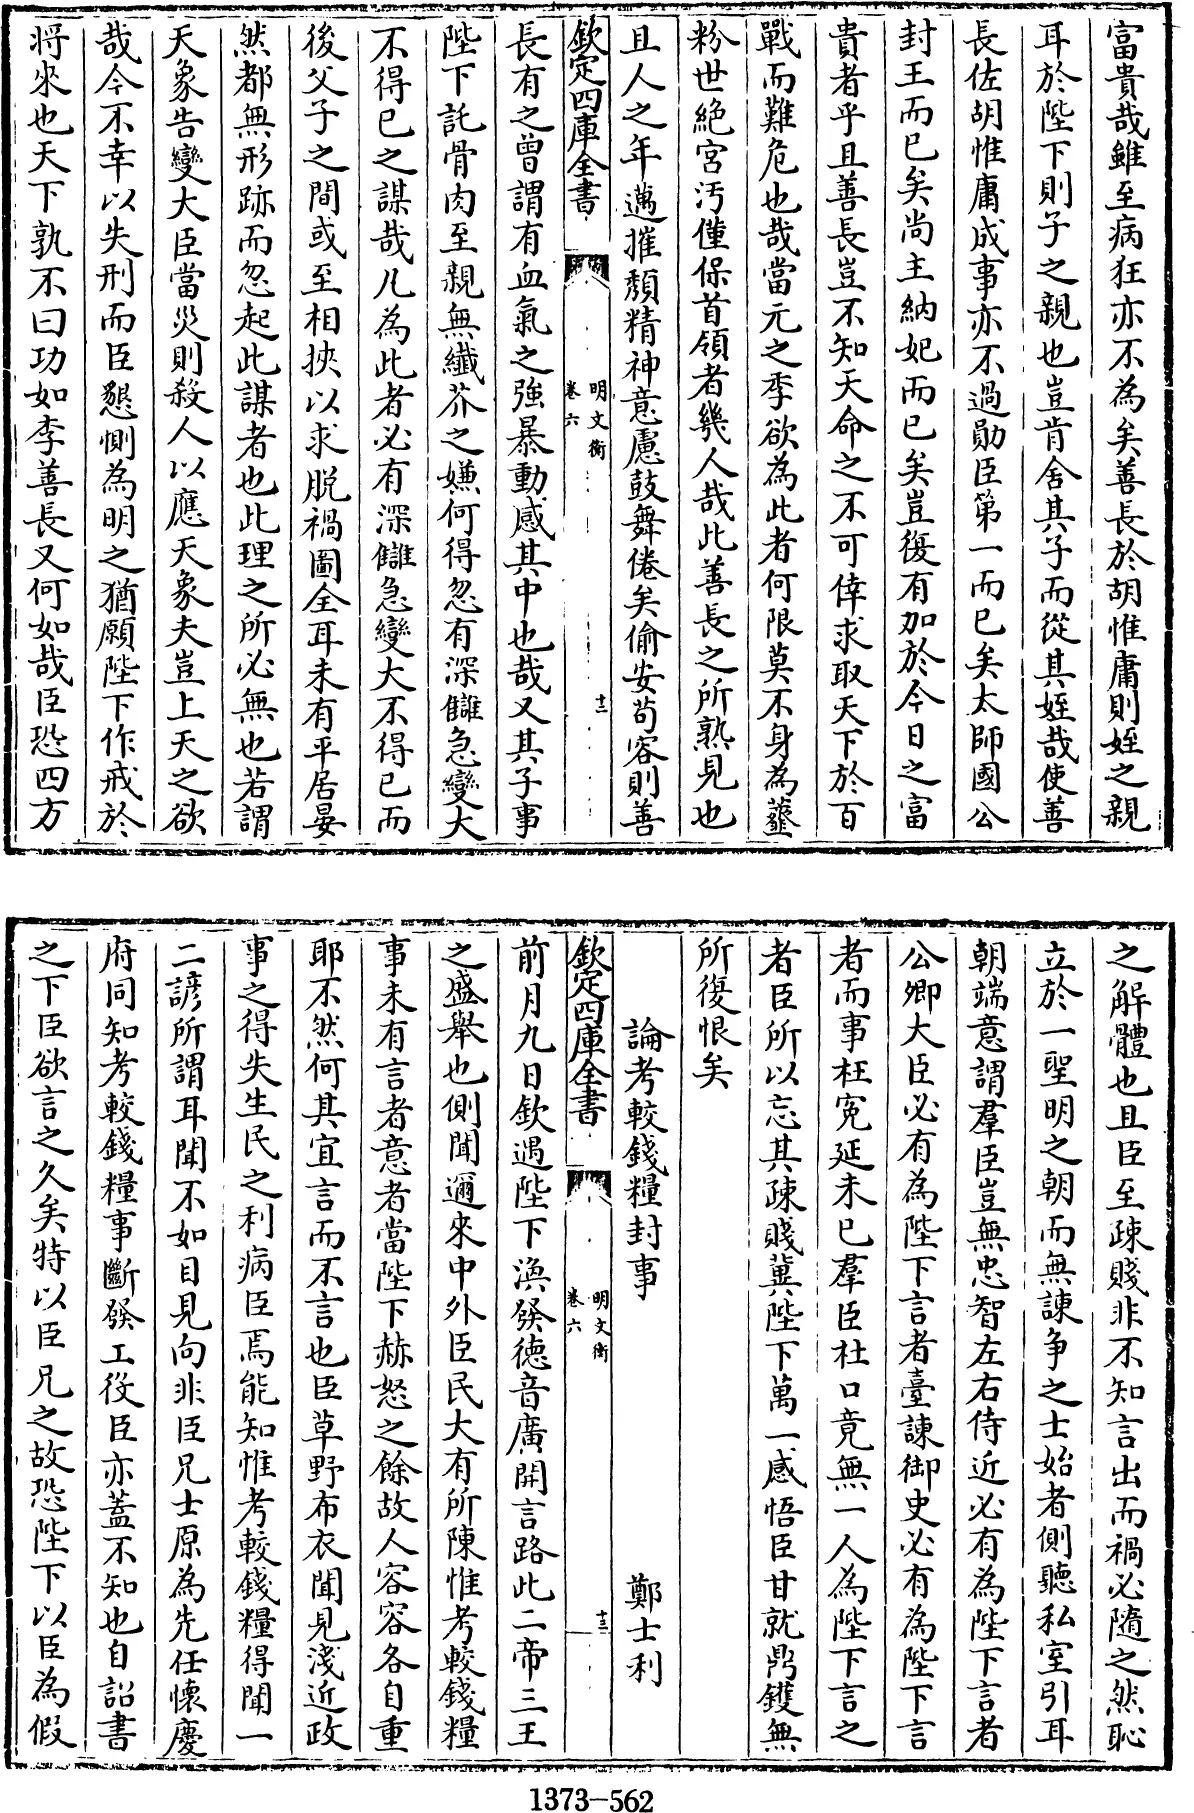 富貴哉雖至病狂亦不為矣善長於胡惟庸則姪之親
耳於陛下則子之親也豈肯舍其子而從其姪哉使善
長佐胡惟庸成事亦不過勛臣第一而已矣太師國公
封王而已矣尚主納妃而已矣豈復有加於今日之富
貴者乎且善長豈不知天命之不可倖求取天下於百
戰而難危也哉當元之季欲為此者何限莫不身為虀
粉世絶宮汚僅保首領者幾人哉此善長之所熟見也
且人之年邁摧頽精神意慮鼓舞倦矣偷安苟容則善
欽定四庫全書
明文衡
卷六
十二
長有之曾謂有血氣之強暴動感其中也哉又其子事
陛下託骨肉至親無纖芥之嫌何得忽有深讎急變大
不得已之謀哉凡為此者必有深讎急變大不得已而
後父子之間或至相挾以求脱禍圖全耳未有平居晏
然都無形跡而忽起此謀者也此理之所必無也若謂
天象告變大臣當災則殺人以應天象夫豈上天之欲
哉今不幸以失刑而臣懇惻為明之猶願陛下作戒於
将來也天下孰不曰功如李善長又何如哉臣恐四方
之解體也且臣至疎賤非不知言出而禍必隨之然恥
立於一聖明之朝而無諫爭之士始者側聽私室引耳
朝端意謂羣臣豈無忠智左右侍近必有為陛下言者
公卿大臣必有為陛下言者臺諫御史必有為陛下言
者而事枉寃延未已羣臣杜口竟無一人為陛下言之
者臣所以忘其疎賤冀陛下萬一感悟臣甘就鼎鑊無
所復恨矣
論考較錢糧封事
鄭士利
欽定四庫全書
明文衡
卷六
十三
前月九日欽遇陛下渙發德音廣開言路此二帝三王
之盛舉也側聞邇來中外臣民大有所陳惟考較錢糧
事未有言者意者當陛下赫怒之餘故人容容各自重
耶不然何其宜言而不言也臣草野布衣聞見淺近政
事之得失生民之利病臣焉能知惟考較錢糧得聞一
二諺所謂耳聞不如目見向非臣兄士原為先任懷慶
府同知考較錢糧事斷發工役臣亦蓋不知也自詔書
之下臣欲言之久矣特以臣兄之故恐陛下以臣為假
1373—562